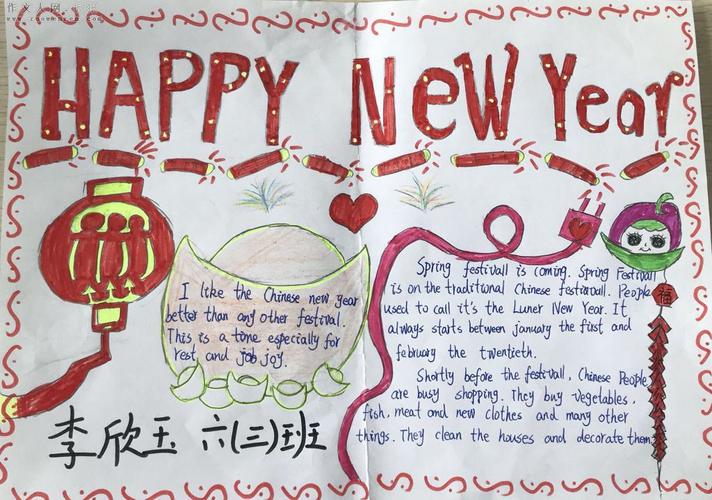 作文人网
HAPPY New Year
I like the Chinese new year
better than any other festival.
This is a time especially for
rest and joy.
Spring festivall is coming. Spring Festivall
is on the traditional Chinese festivall. People
used to call it's the Luner New Year. It
always starts between january the first and
february the twentieth.
Shortly before the festivall, Chinese People
are busy shopping. They buy vegetables,
fish, meat and new clothes and many other
things. They clean the houses and decorate them
福
李欣玉 六(三)班